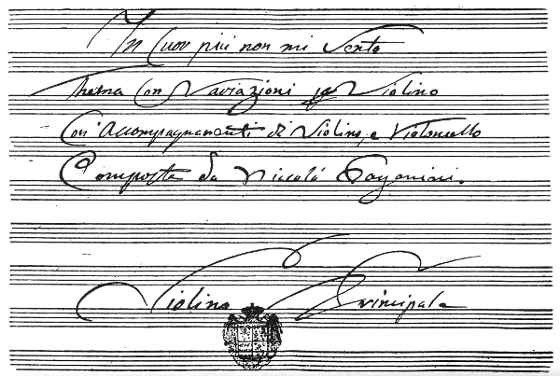 In Cuor più non mi Sento
Thema Con Variazioni p Violino
Con Accompagnamenti di Violino, e Violoncello
Composte da Niccolò Paganini.
Violino Principale